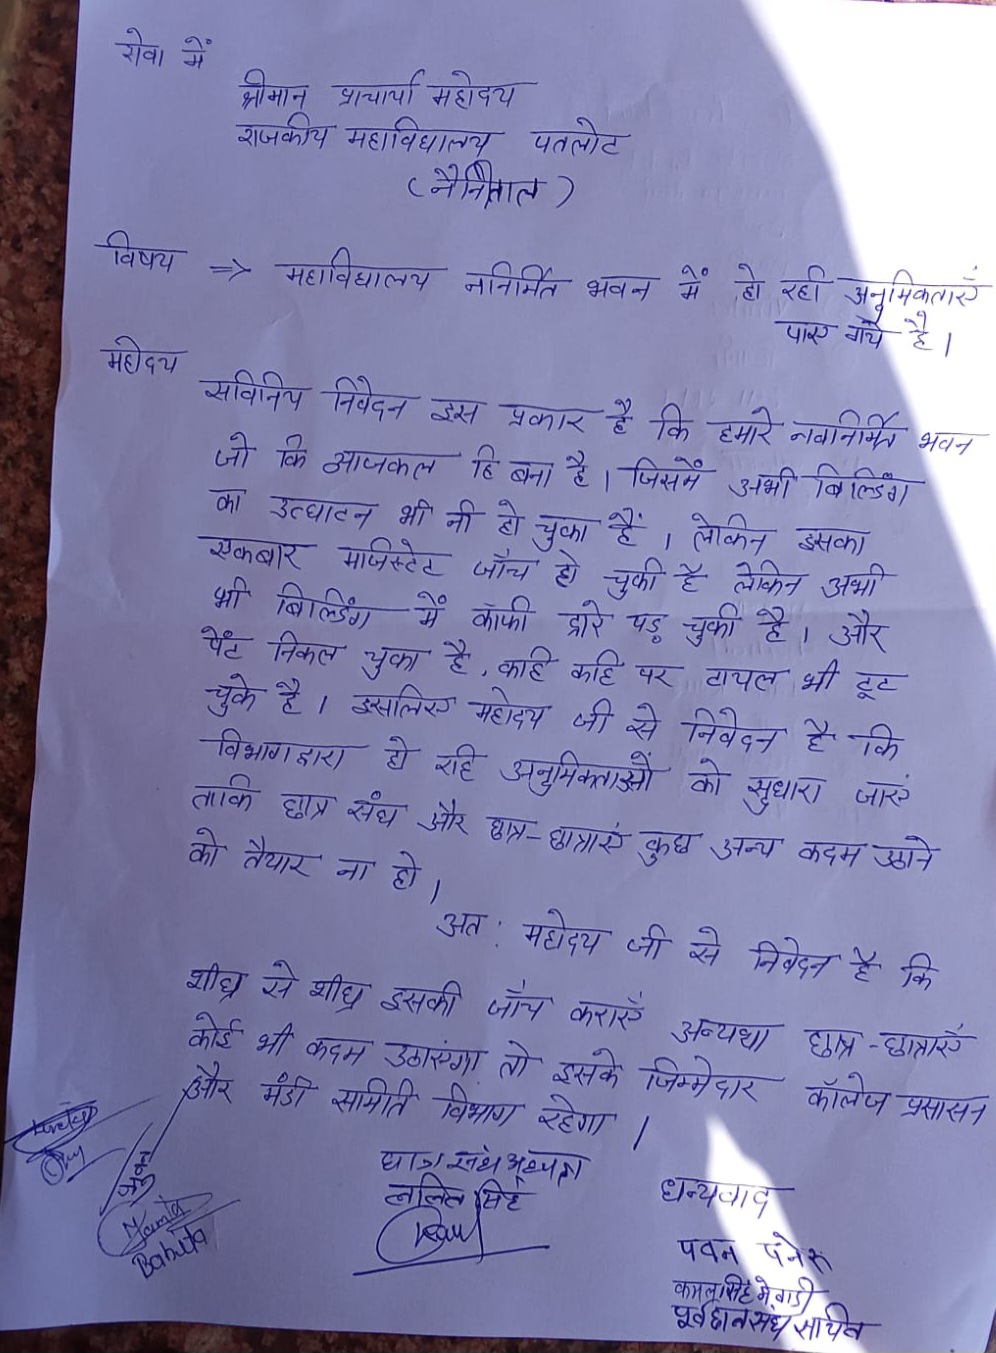 सेवा में
श्रीमान प्राचार्या महोदय
राजकीय महाविधालय पतलोट
(नैनीताल)
विषय => महाविधालय ननिर्मित भवन में हो रही अनुमिकताएँ
पाए गये है।
महोदय
सविनिय निवेदन इस प्रकार है कि हमारे नवनिर्मित भवन
जो कि आजकल हि बना है। जिसमें अभी बिल्डिंग
का उत्घाटन भी नी हो चुका हैं । लेकिन इसका
एकबार मजिस्टेट जाँच हो चुकी है लेकिन अभी
भी बिल्डिंग में कॉफी द्रारे पड़ चुकी है। और
पेंट निकल चुका है, कहि कहि पर टायल भी टूट
चुके है। इसलिए महोदय जी से निवेदन है कि
विभाग द्वारा हो रहि अनुमिकताओं को सुधारा जाएं
ताकि छात्र संघ और छात्र-छात्राएं कुछ अन्य कदम उठाने
को तैयार ना हो।
अत: महोदय जी से निवेदन है कि
शीघ्र से शीघ्र इसकी जाँच कराएँ अन्यथा छात्र-छात्राएँ
कोई भी कदम उठाएंगा तो इसके जिम्मेदार कॉलेज प्रसासन
और मंडी समिति विभाग रहेगा ।
छात्र संघ अध्यक्ष
ललित सिंह
धन्यवाद
पवन पनेरू
कमल सिंह मेवाडी
पूर्व छात्र संघ सचिव
Mamta
Bahuta